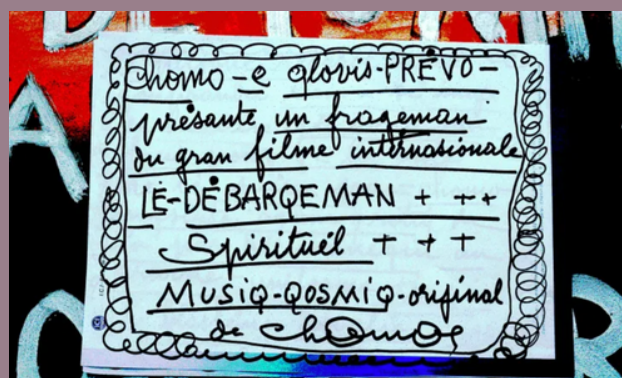 chomo - e qlovis - PRÉVO -
présante un frageman
du gran filme internasionale
LE - DÉBARQEMAN + ++
Spirituèl + + +
MUSIQ - QOSMIQ - original
de chomo